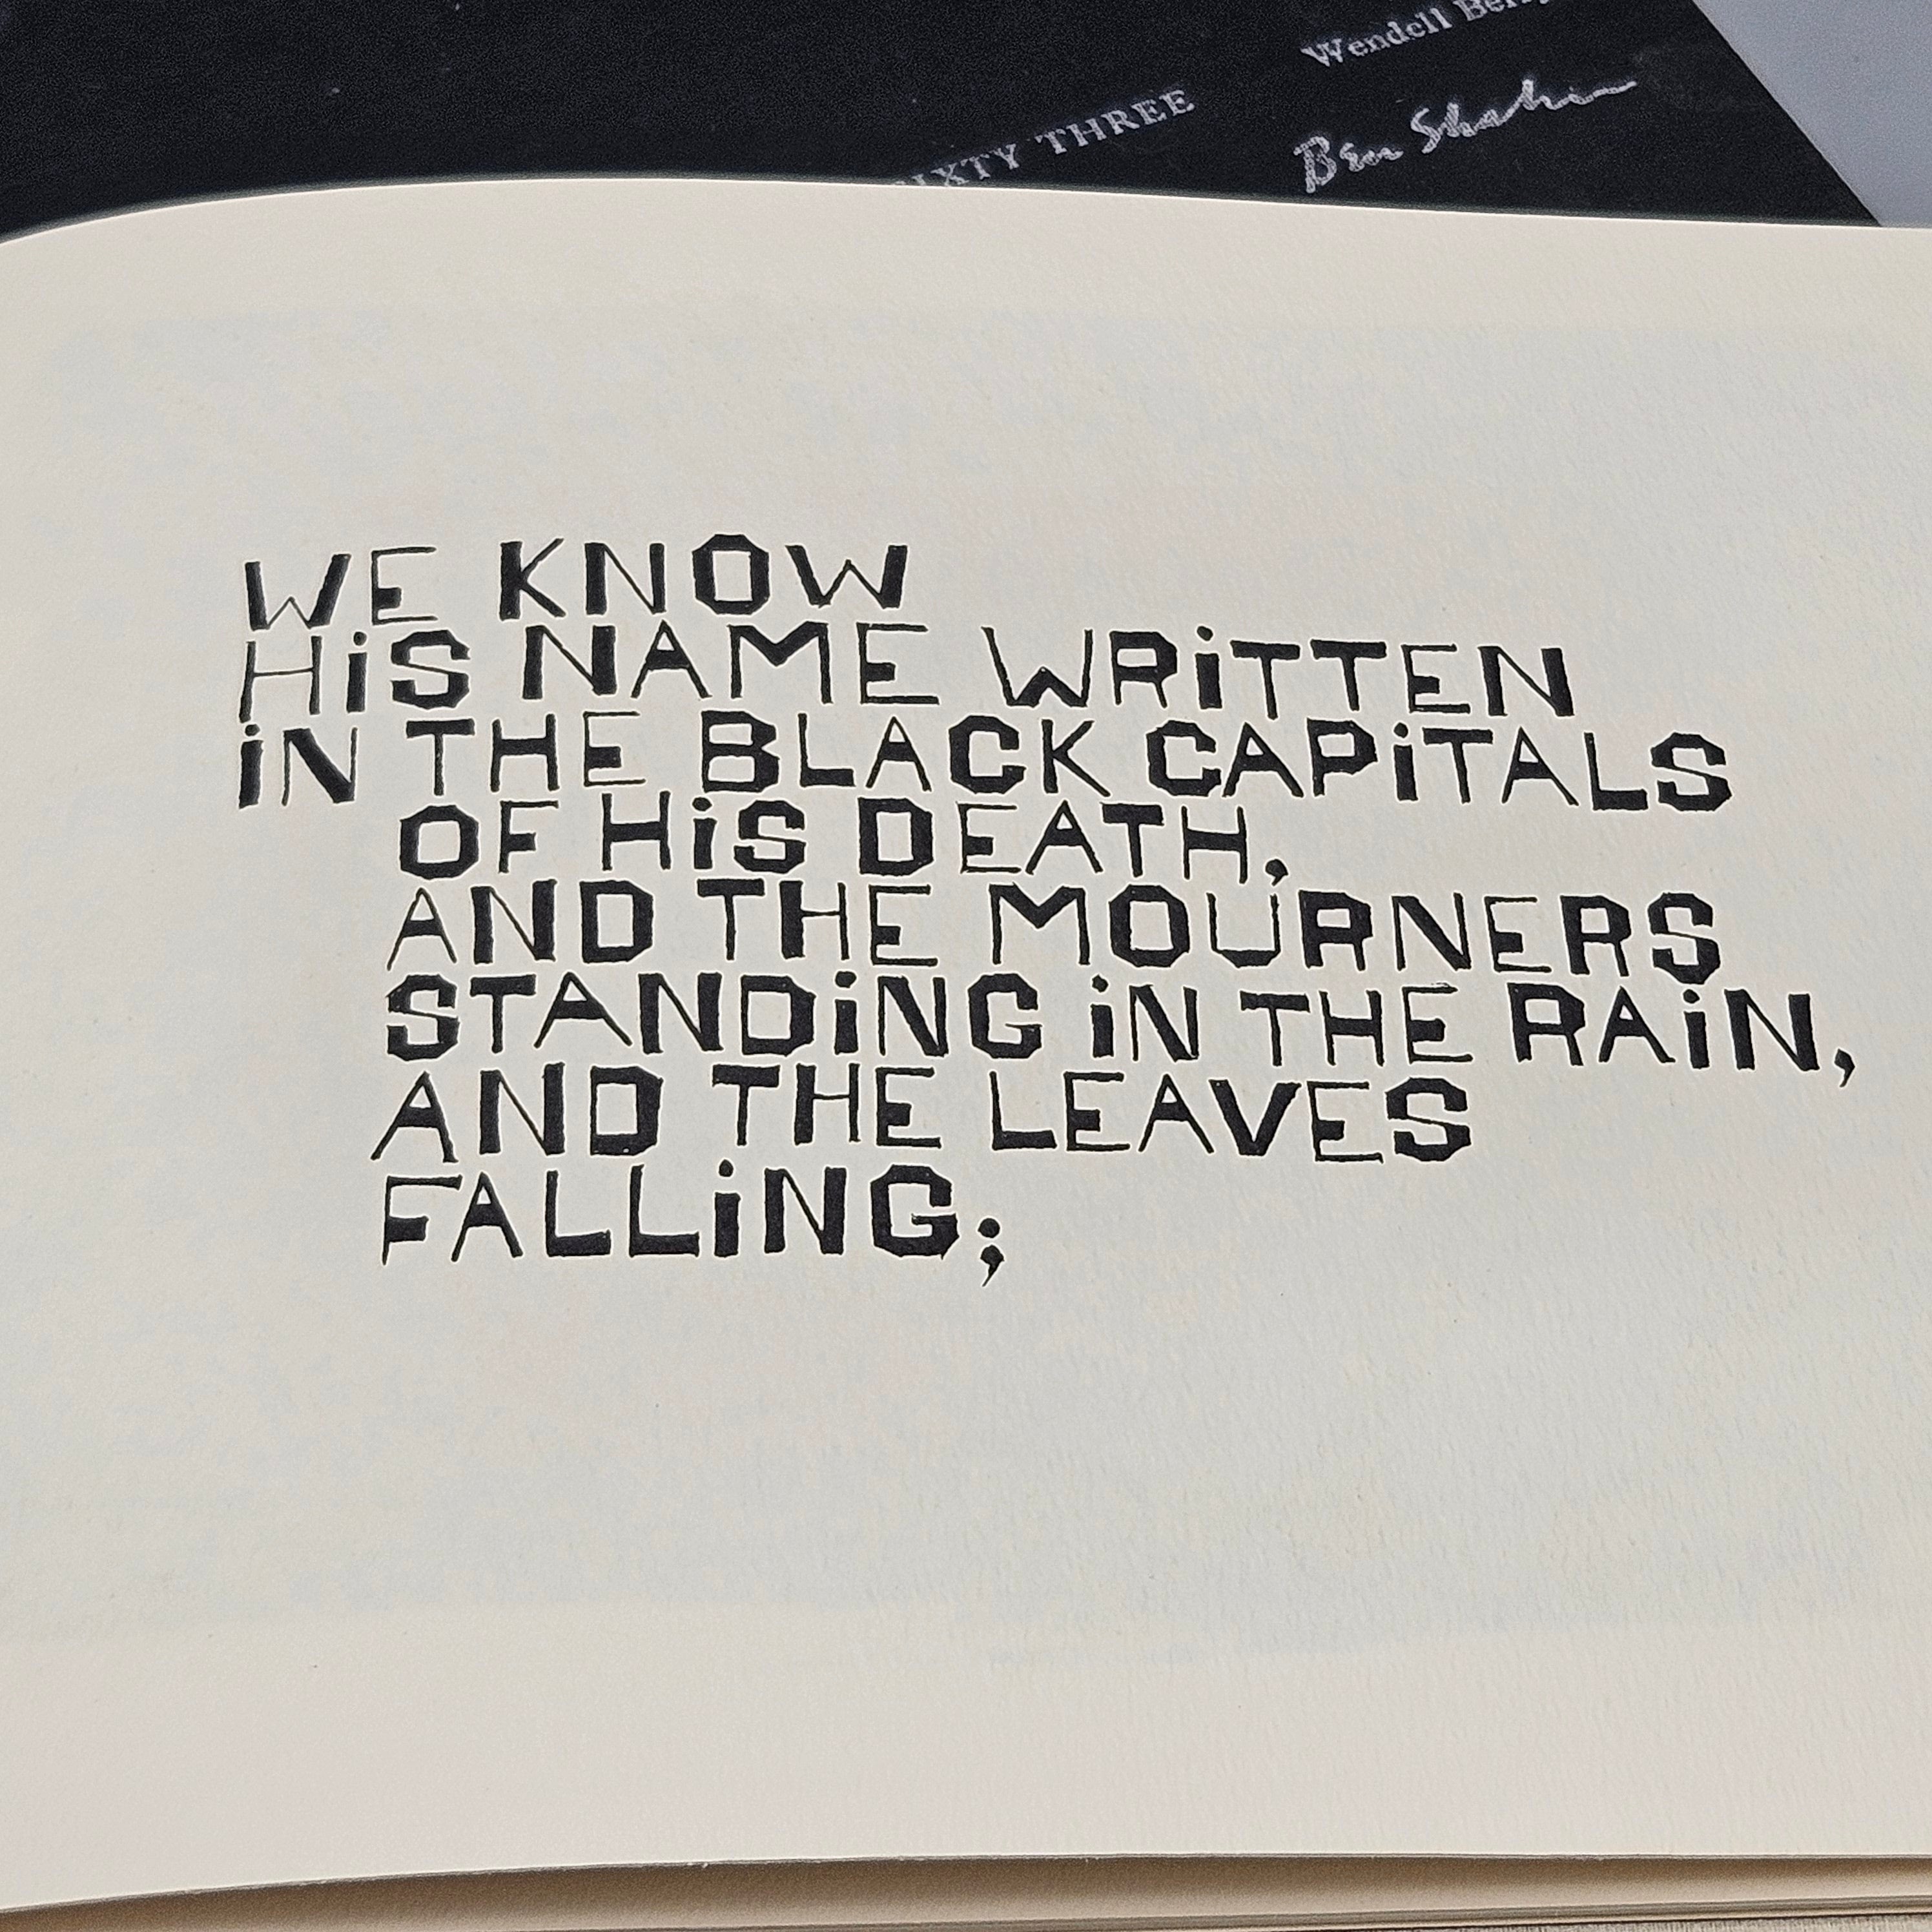 Wendell
SIXTY THREE
Ben Shahn
WE KNOW
HiS NAME WRiTTEN
iN THE BLACK CAPiTALS
OF HiS DEATH,
AND THE MOURNERS
STANDiNG iN THE RAiN,
AND THE LEAVES
FALLiNG;